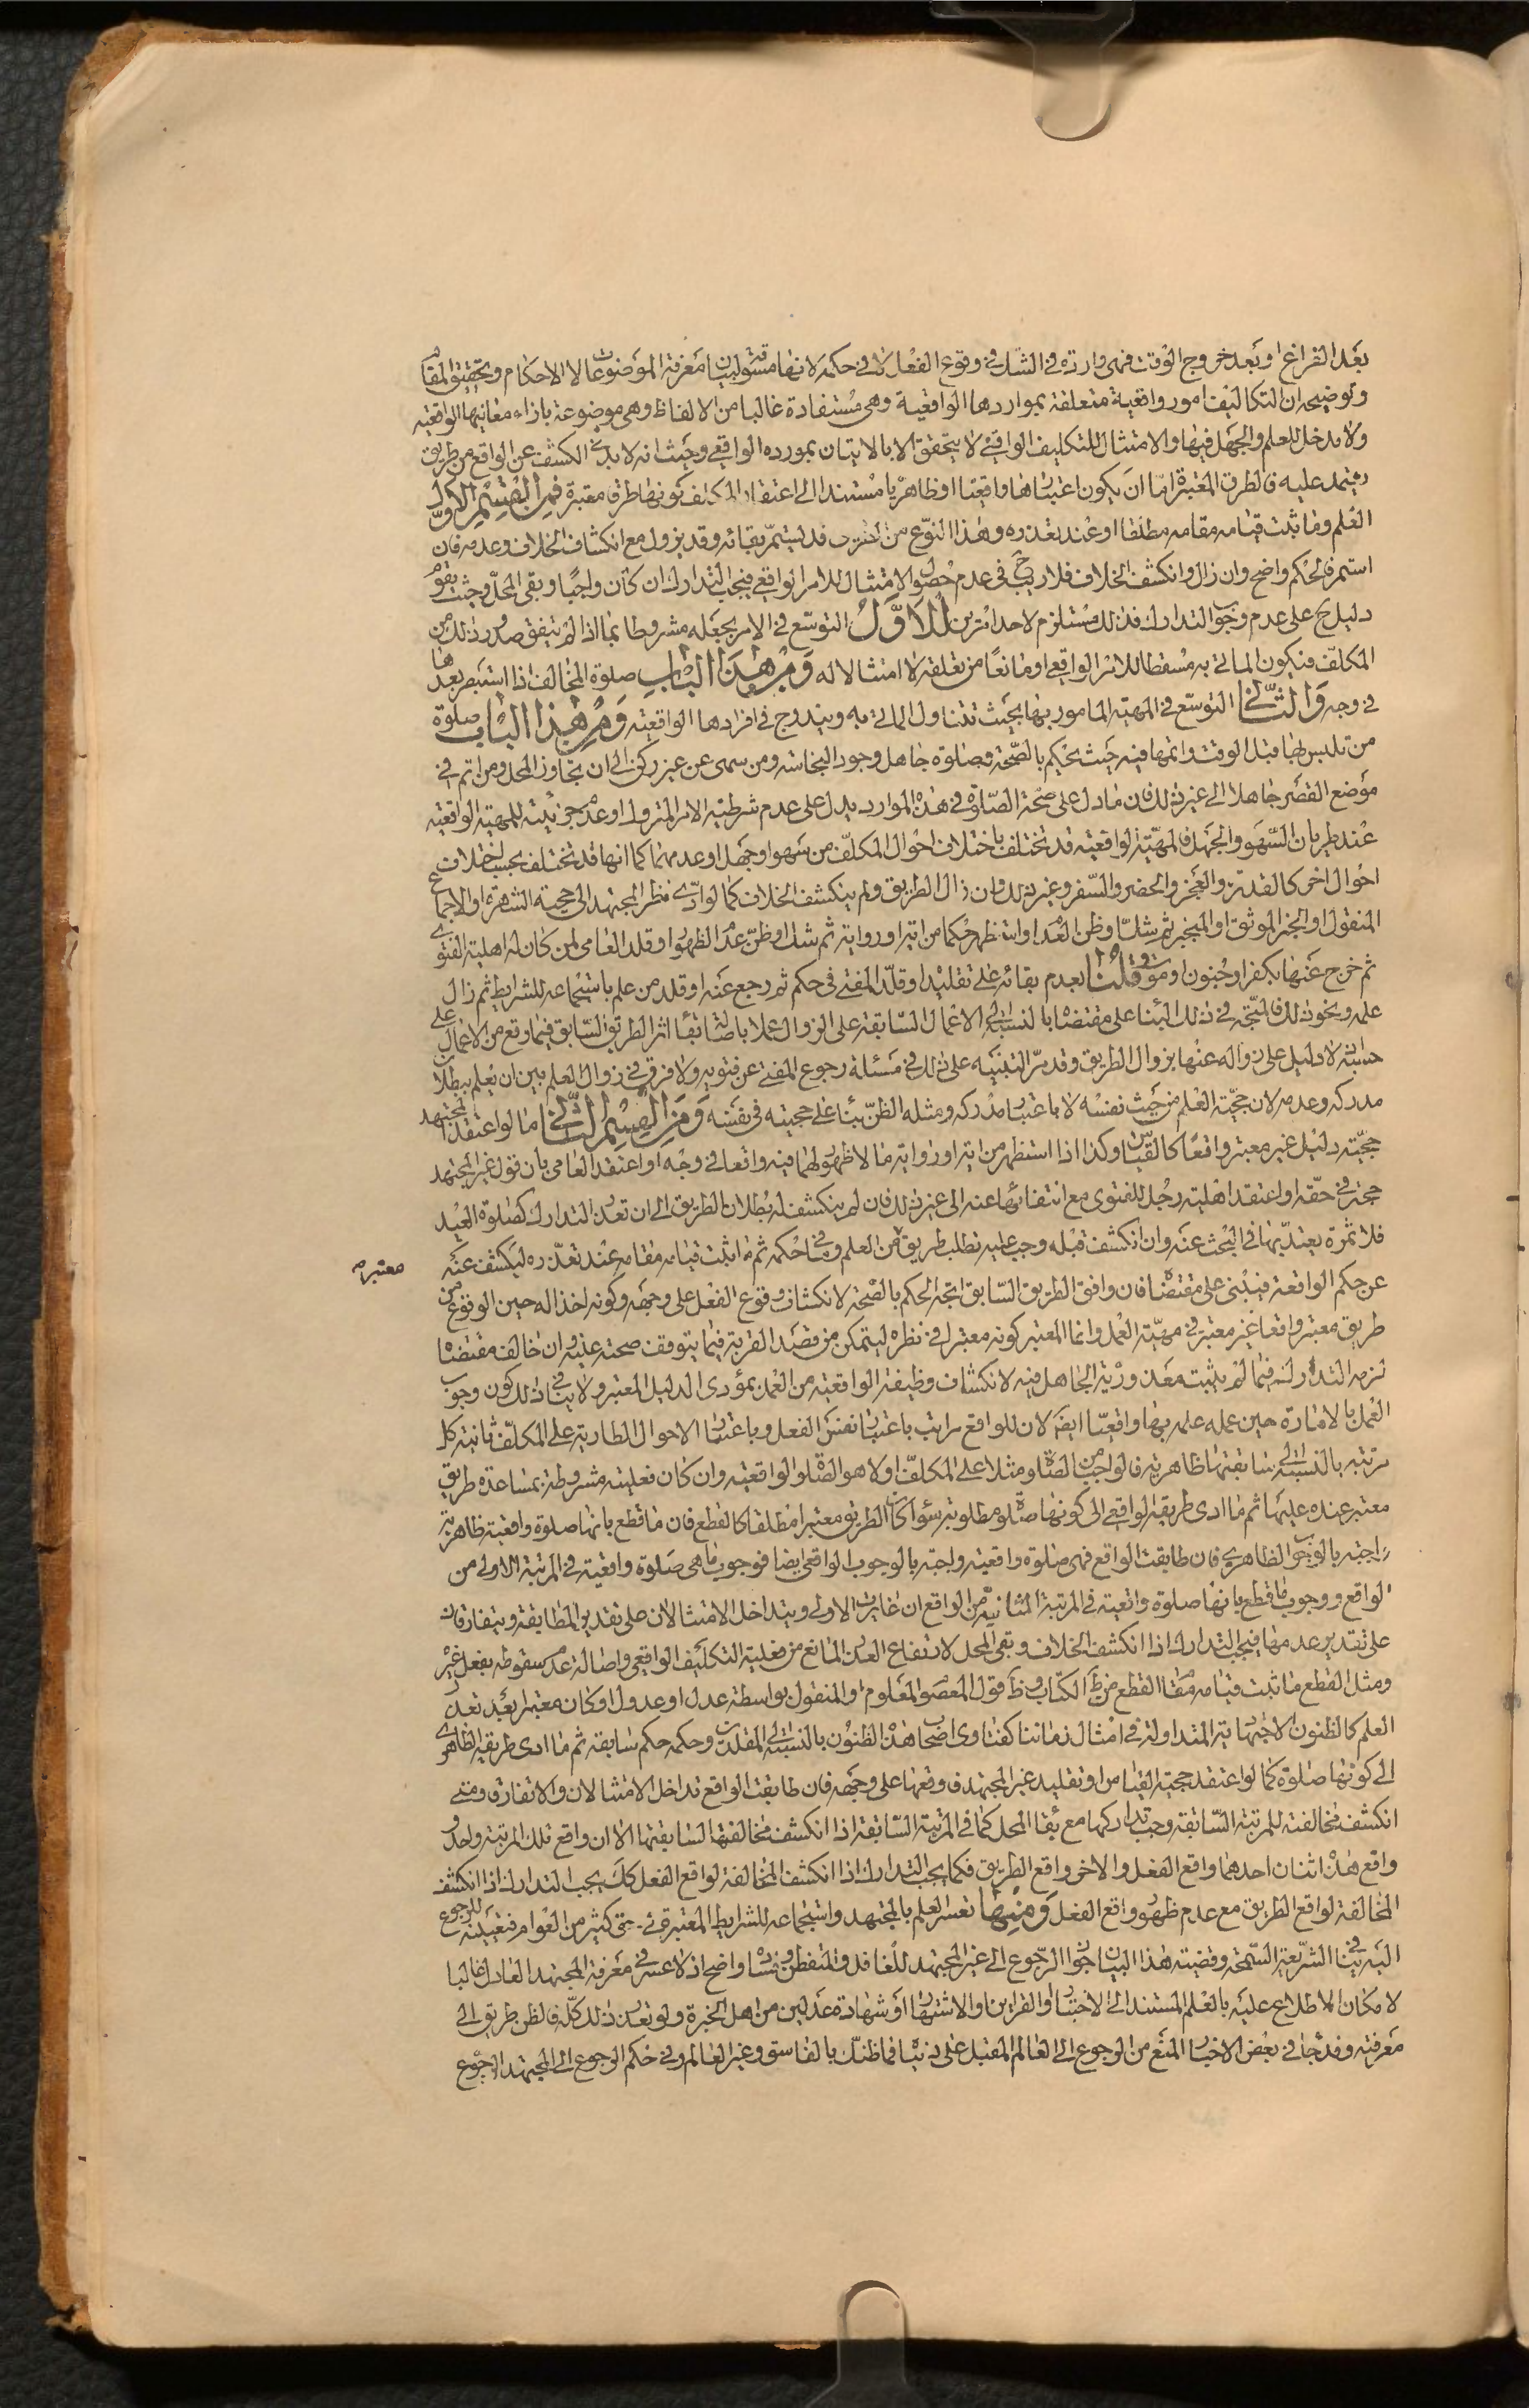 بعد الفراغ او بعد خروج الوقت فهى واردة فى الشك فى وقوع الفعل لا فى حكمه لانها مسوقة لبيان معرفة الموضوعات لا الاحكام وتحقيق المقام
وتوضيحه ان التكاليف امور واقعية متعلقة بمواردها الواقعية وهى مستفادة غالبا من الالفاظ وهى موضوعة بازاء معانيها الواقعية
ولا مدخل للعلم والجهل فيها والامتثال للتكليف الواقعى لا يتحقق الا بالاتيان بمورده الواقعى وحيث انه لا بد فى الكشف عن الواقع من طريق
يعتمد عليه فالطرق المعتبرة اما ان يكون اعتبارها واقعيا او ظاهريا مستندا الى اعتقاد المكلف كونها طرقا معتبرة فمن القسم الاول
العلم وما ثبت قيامه مقامه مطلقا او عند تعذره وهذا النوع من الطرق قد يستمر بقائه وقد يزول مع انكشاف الخلاف وعدمه فان
استمر فالحكم واضح وان زال وانكشف الخلاف فلا ريب ح فى عدم حصول الامتثال للامر الواقعى فيجب التدارك ان كان واجبا وبقى المحل وحيث يقوم
دليل ح على عدم وجوب التدارك فذلك مستلزم لاحد امرين الاول التوسع فى الامر بجعله مشروطا بما اذا لم يتفق صدور ذلك من
المكلف فيكون الماتى به مسقطا للامر الواقعى او مانعا من تعلقه لا امتثالا له ومن هذا الباب صلوة المخالف اذا استبصر بعدها
فى وجه والثانى التوسع فى المهية المامور بها بحيث تتناول الماتى به ويندرج فى افرادها الواقعية ومن هذا الباب صلوة
من تلبس بها قبل الوقت واتمها فيه حيث يحكم بالصحة وصلوة جاهل وجود النجاسة ومن سهى عن غير ركن الى ان تجاوز المحل ومن اتم فى
موضع القصر جاهلا الى غير ذلك فان ما دل على صحة الصلوة فى هذه الموارد يدل على عدم شرطية الامر المتروك او عدم جزئيته للمهية الواقعية
عند طريان السهو والجهل فالمهية الواقعية قد تختلف باختلاف احوال المكلف من سهو او جهل او عدمهما كما انها قد تختلف بحسب اختلاف
احوال اخر كالقدرة والعجز والحضر والسفر وغير ذلك وان زال الطريق ولم ينكشف الخلاف كما لو ادى نظر المجتهد الى حجية الشهرة او الاجماع
المنقول او الخبر الموثق او المنجبر ثم شك او ظن العدم او استظهر حكما من اية او رواية ثم شك او ظن عدم الظهور او قلد العامى لمن كان له اهلية الفتوى
ثم خرج عنها بكفر او جنون او موت وقلنا بعدم بقائه على تقليده او قلد المفتى فى حكم ثم رجع عنه او قلد من علم باستجماعه للشرايط ثم زال
علمه ونحو ذلك فالمتجه فى ذلك البناء على مقتضاه بالنسبة الى الاعمال السابقة على الزوال عملا باصالة بقاء اثر الطريق السابق فيما وقع من الاعمال على
حسبه لانه لا دليل على زواله عنها بزوال الطريق وقد مر التنبيه على ذلك فى مسئلة رجوع المفتى عن فتويه ولا فرق فى زوال العلم بين ان يعلم ببطلان
مدركه وعدمه لان حجية العلم من حيث نفسه لا باعتبار مدركه ومثله الظن بناء على حجيته فى نفسه ومن القسم الثانى ما لو اعتقد المجتهد
حجية دليل غير معتبر واقعا كالقياس وكذا اذا استظهر من اية او رواية ما لا ظهور لهما فيه واقعا فى وجه او اعتقد العامى بان قول غير المجتهد
حجة فى حقه او اعتقد اهلية رجل للفتوى مع انتفائها عنه الى غير ذلك فان لم ينكشف له بطلان الطريق الى ان تعذر التدارك كصلوة العيد
فلا ثمرة يعتد بها فى البحث عنه وان انكشف قبله وجب عليه تطلب طريق من العلم وما فى حكمه ثم ما ثبت قيامه مقامه عند تعذره ليكشف عنه
معتبرة
عن حكم الواقعة فيبنى على مقتضاه فان وافق الطريق السابق اتجه الحكم بالصحة لانكشاف وقوع الفعل على وجهه وكونه اخذا له حين الوقوع من
طريق معتبر واقعا غير معتبر فى مهية العمل وانما المعتبر كونه معتبرا فى نظره ليتمكن من قصد القربة فيما يتوقف صحته عليه وان خالف مقتضاه
لزمه التدارك فيما لم يثبت معذورية الجاهل فيه لانكشاف وظيفته الواقعية من العمل بمؤدى الدليل المعتبر ولا ينافى ذلك كون وجوب
العمل بالامارة حين عمله علمه بها واقعيا ايضا لان للواقع مراتب باعتبار نفس الفعل وباعتبار الاحوال الطارية على المكلف ثانية كل
مرتبة بالنسبة الى سابقتها ظاهرية فالواجب من الصلوة مثلا على المكلف اولا هو الصلوة الواقعية وان كان فعليته مشروطة بمساعدة طريق
معتبر عنده عليها ثم ما ادى طريقه الواقعى الى كونها صلوة مطلوبة سواء كان الطريق معتبرا مطلقا كالقطع فان ما قطع بانها صلوة واقعية ظاهرية
واجبة بالوجوب الظاهرى فان طابقت الواقع فهى صلوة واقعية واجبة بالوجوب الواقعى ايضا فوجوب ما هى صلوة واقعية فى المرتبة الاولى من
الواقع ووجوب ما قطع بانها صلوة واقعية فى المرتبة الثانية من الواقع ان غايرت الاولى ويتداخل الامتثالان على تقدير المطابقة ويتفارقان
على تقدير عدمها فيجب التدارك اذا انكشف الخلاف وبقى المحل لارتفاع العذر المانع من فعلية التكليف الواقعى واصالة عدم سقوطه بفعل غيره
ومثل القطع ما ثبت قيامه مقام القطع من ظ الكتاب وظ قول المعصوم المعلوم او المنقول بواسطة عدل او عدول او كان معتبرا بعد تعذر
العلم كالظنون الاجتهادية المتداولة فى امثال زماننا كفتاوى اصحاب هذه الظنون بالنسبة الى المقلدين وحكمه حكم سابقه ثم ما ادى طريقه الظاهرى
الى كونها صلوة كما لو اعتقد حجية القياس او تقليد غير المجتهد فاوقعها على وجهه فان طابقت الواقع تداخل الامتثالان والا تفارقا ومتى
انكشف مخالفته للمرتبة السابقة وجب تداركها مع بقاء المحل كما فى المرتبة السابقة اذا انكشف مخالفتها لسابقتها الا ان واقع تلك المرتبة واحد و
واقع هذه اثنان احدهما واقع الفعل والاخر واقع الطريق فكما يجب التدارك اذا انكشف المخالفة لواقع الفعل كك يجب التدارك اذا انكشف
المخالفة لواقع الطريق مع عدم ظهور واقع الفعل ومنها تعسر العلم بالمجتهد واستجماعه للشرايط المعتبرة فى حق كثير من العوام فتعيينه للرجوع
اليه ينافى الشريعة السمحة وقضية هذا البيان جواز الرجوع الى غير المجتهد للغافل والمتفطن وفساده واضح اذ لا عسر فى معرفة المجتهد العادل غالبا
لامكان الاطلاع عليه بالعلم المستند الى الاختبار او القراين او الاشتهار او شهادة عدلين من اهل الخبرة ولو تعذر ذلك كله فالظن طريق الى
معرفته وقد جاء فى بعض الاخبار المنع من الرجوع الى العالم المقبل على دنياه فما ظنك بالفاسق وغير العالم وفى حكم الرجوع الى المجتهد الرجوع